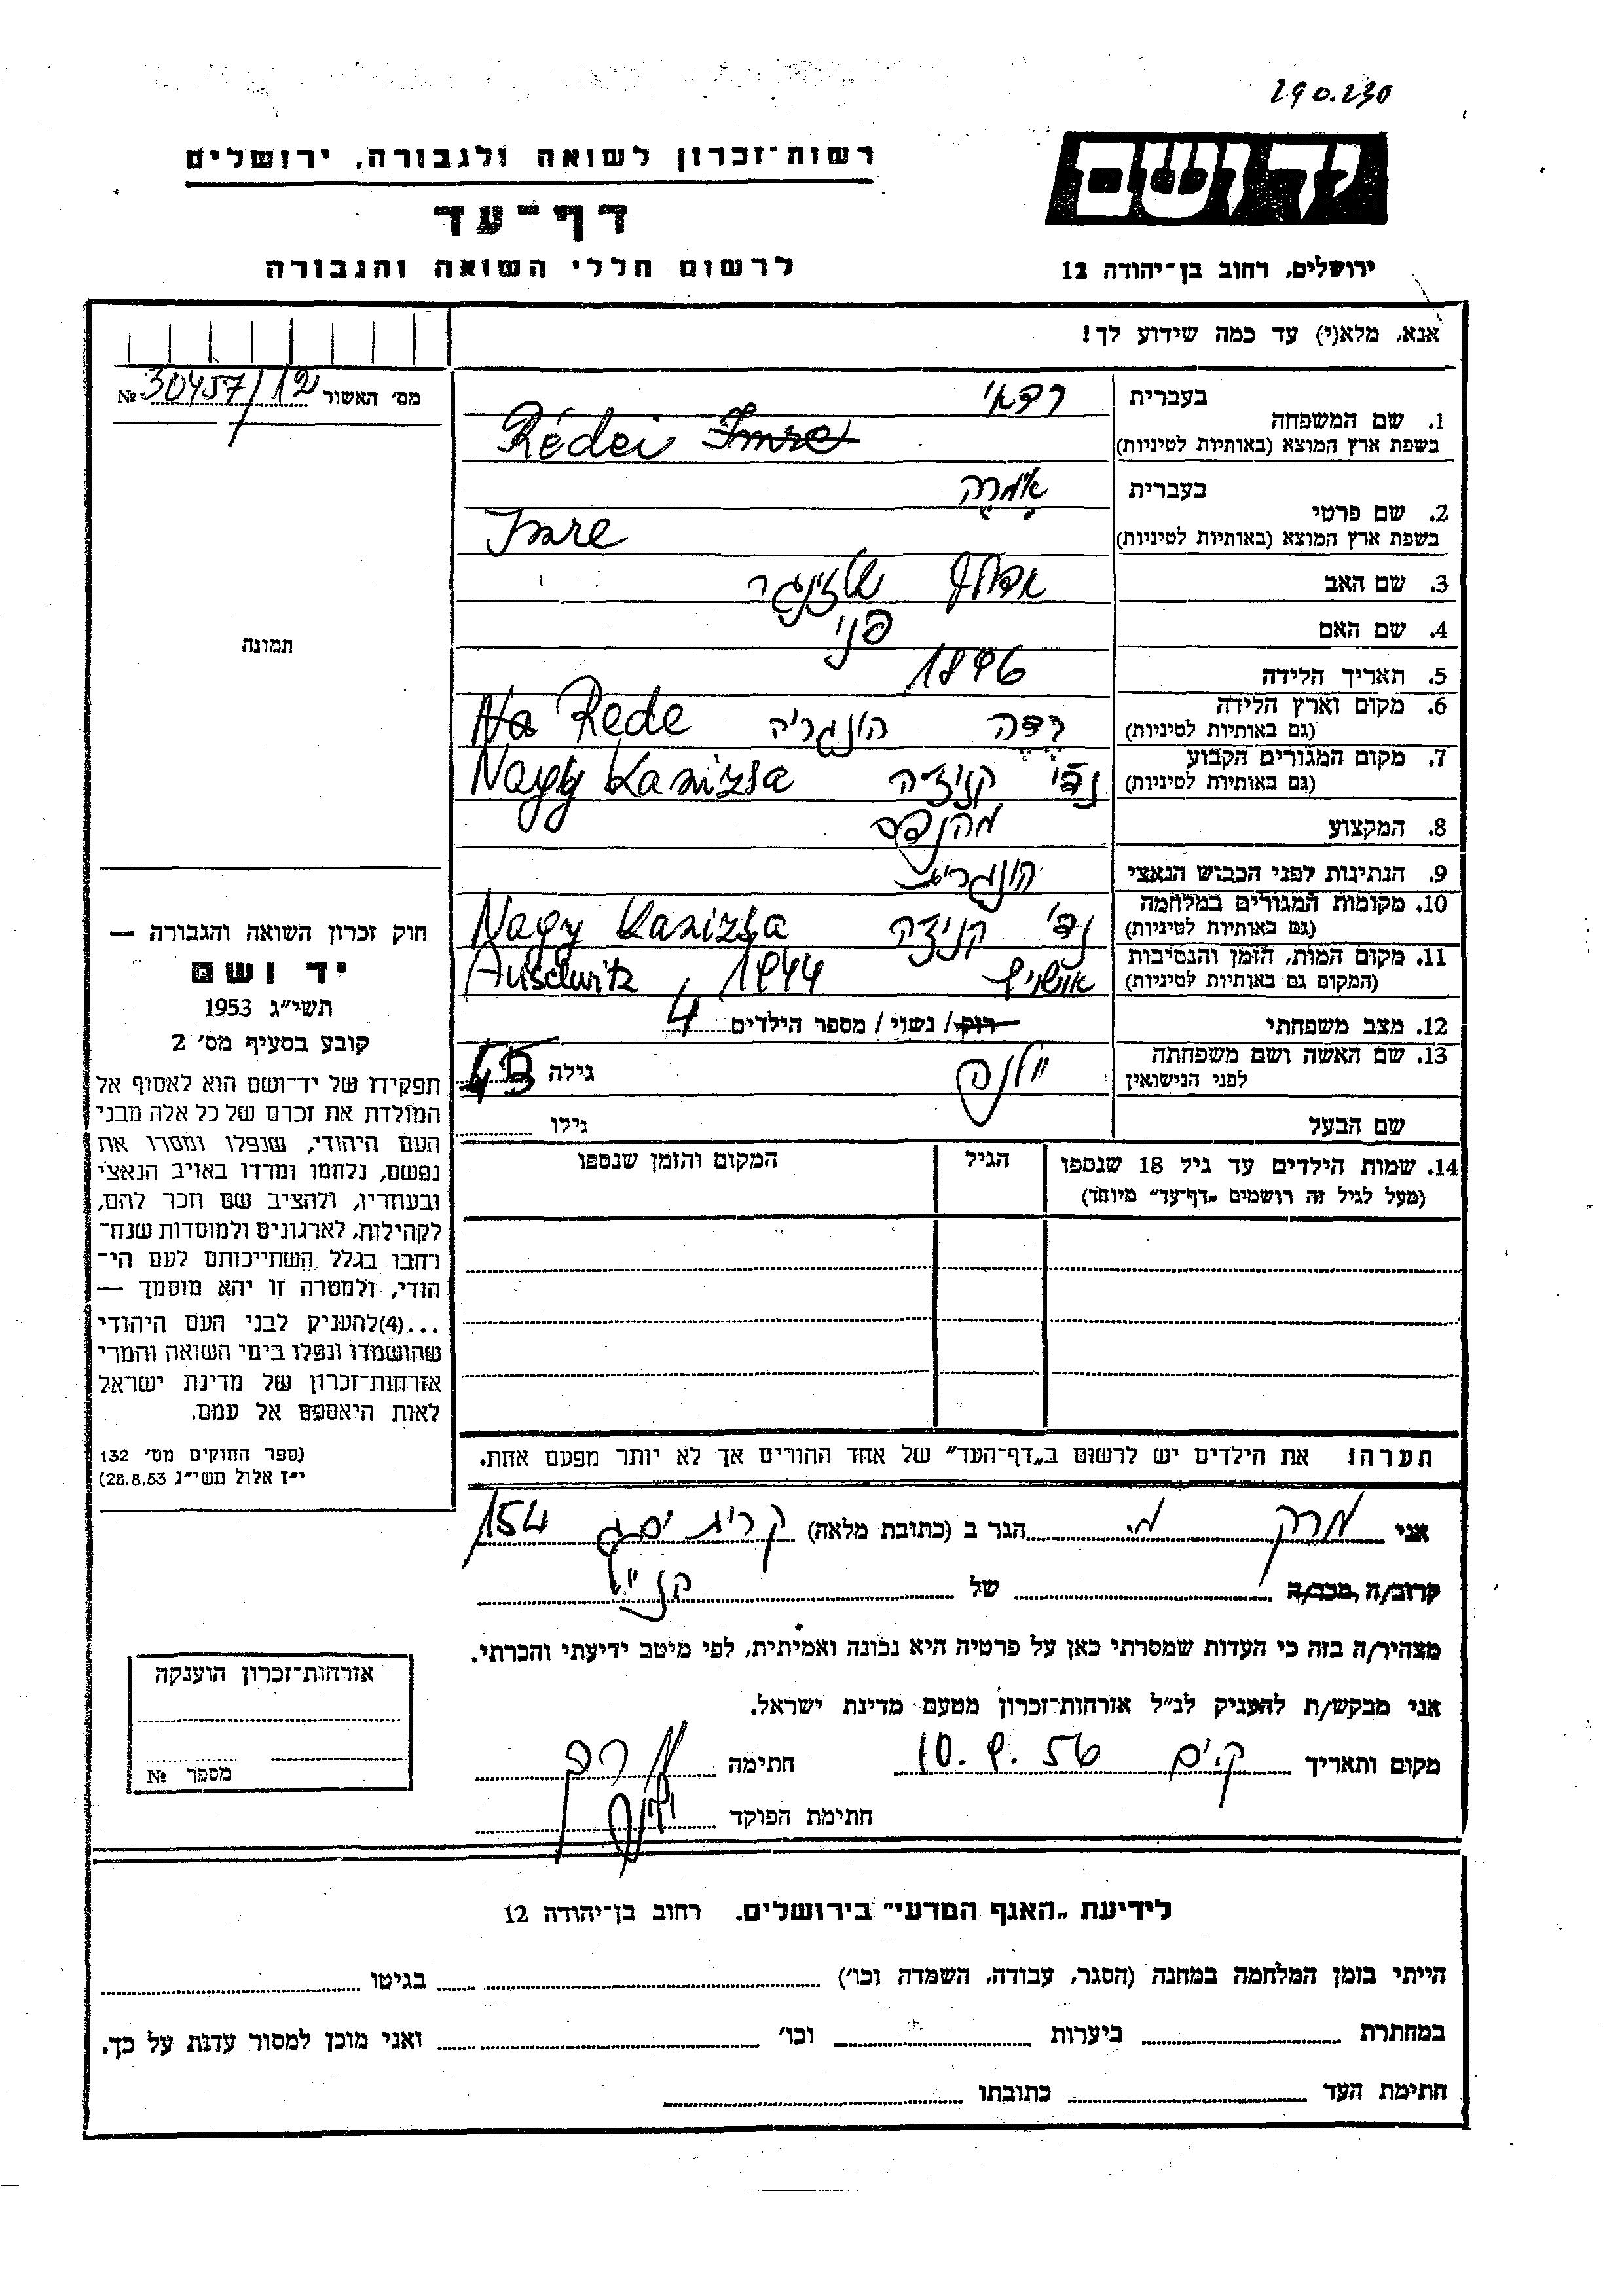 290.230
יד ושם
רשות־זכרון לשואה ולגבורה, ירושלים
דף־עד
לרשום חללי השואה והגבורה
ירושלים, רחוב בן־יהודה 12
אנא, מלא(י) עד כמה שידוע לך!
מס׳ האשור 30457/12 №
בעברית רדאי
1. שם המשפחה
בשפת ארץ המוצא (באותיות לטיניות) Rédei Imre
בעברית אִמרֶה
2. שם פרטי
בשפת ארץ המוצא (באותיות לטיניות) Imre
3. שם האב אדולף שלזינגר
4. שם האם פני
5. תאריך הלידה 1896
6. מקום וארץ הלידה
(גם באותיות לטיניות) רֶדֶה הונגריה Na Rede
7. מקום המגורים הקבוע
(גם באותיות לטיניות) נדי קניזה Nagy Kanizsa
8. המקצוע מהנדס
9. הנתינות לפני הכבוש הנאצי הונגרית
10. מקומות המגורים במלחמה
(גם באותיות לטיניות) נדי קניזה Nagy Kanizsa
11. מקום המות, הזמן והנסיבות
(המקום גם באותיות לטיניות) אושויץ 1944 Auschwitz
12. מצב משפחתי רוק / נשוי / מספר הילדים 4
13. שם האשה ושם משפחתה
לפני הנישואין יולנה גילה 45
שם הבעל גילו
14. שמות הילדים עד גיל 18 שנספו
(מעל לגיל זה רושמים „דף־עד״ מיוחד)
הגיל
המקום והזמן שנספו
תמונה
חוק זכרון השואה והגבורה —
יד ושם
תשי״ג 1953
קובע בסעיף מס׳ 2
תפקידו של יד־ושם הוא לאסוף אל
המולדת את זכרם של כל אלה מבני
העם היהודי, שנפלו ומסרו את
נפשם, נלחמו ומרדו באויב הנאצי
ובעוזריו, ולהציב שם וזכר להם,
לקהילות, לארגונים ולמוסדות שנח־
רבו בגלל השתייכותם לעם הי־
הודי, ולמטרה זו יהא מוסמך —
...(4) להעניק לבני העם היהודי
שהושמדו ונפלו בימי השואה והמרי
אזרחות־זכרון של מדינת ישראל
לאות היאספם אל עמם.
(ספר החוקים מס׳ 132
י״ז אלול תשי״ג 28.8.53)
הערה! את הילדים יש לרשום ב„דף־העד״ של אחד ההורים אך לא יותר מפעם אחת.
אני מרק מ. הגר ב (כתובת מלאה) קרית ים ג 154
קרוב/ה, מכר/ה של
מצהיר/ה בזה כי העדות שמסרתי כאן על פרטיה היא נכונה ואמיתית, לפי מיטב ידיעתי והכרתי.
אני מבקש/ת להעניק לנ״ל אזרחות־זכרון מטעם מדינת ישראל.
מקום ותאריך ק. ים 10.9.56 חתימה
חתימת הפוקד
אזרחות־זכרון הוענקה
מספר №
לידיעת „האגף המדעי״ בירושלים. רחוב בן־יהודה 12
הייתי בזמן המלחמה במחנה (הסגר, עבודה, השמדה וכו׳) בגיטו
במחתרת ביערות וכו׳ ואני מוכן למסור עדות על כך.
חתימת העד כתובתו